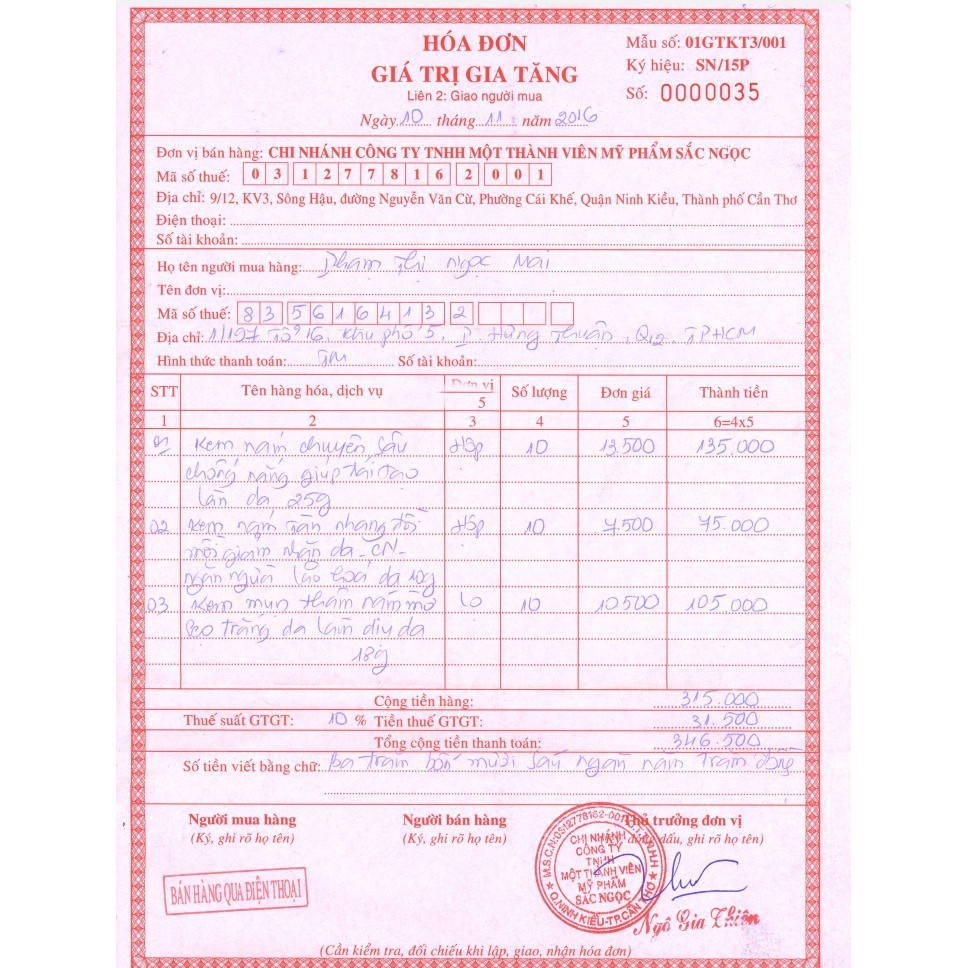 HÓA ĐƠN
GIÁ TRỊ GIA TĂNG
Liên 2: Giao người mua
Ngày 10 tháng 11 năm 2016
Mẫu số: 01GTKT3/001
Ký hiệu: SN/15P
Số: 0000035
Đơn vị bán hàng: CHI NHÁNH CÔNG TY TNHH MỘT THÀNH VIÊN MỸ PHẨM SẮC NGỌC
Mã số thuế: 0312778162001
Địa chỉ: 9/12, KV3, Sông Hậu, đường Nguyễn Văn Cừ, Phường Cái Khế, Quận Ninh Kiều, Thành phố Cần Thơ
Điện thoại:
Số tài khoản:
Họ tên người mua hàng: Phạm Thị Ngọc Mai
Tên đơn vị:
Mã số thuế: 8356164132
Địa chỉ: 1/197 Tổ 16, Khu phố 5, P. Hưng Thuận, Q12, TPHCM
Hình thức thanh toán: TM Số tài khoản:
STT Tên hàng hóa, dịch vụ Đơn vị Số lượng Đơn giá Thành tiền
5
1 2 3 4 5 6=4x5
01 Kem nám chuyên sâu Hộp 10 13.500 135.000
chống nắng giúp tái tạo
làn da 25g
02 Kem nám tàn nhang đồi Hộp 10 7.500 75.000
mồi giảm nhăn da -CN-
ngăn ngừa lão hoá da 10g
03 Kem mụn thâm nám mờ lọ 10 10.500 105.000
sẹo trắng da làm dịu da
18g
Cộng tiền hàng: 315.000
Thuế suất GTGT: 10 % Tiền thuế GTGT: 31.500
Tổng cộng tiền thanh toán: 346.500
Số tiền viết bằng chữ: Ba trăm bốn mươi sáu ngàn năm trăm đồng
Người mua hàng Người bán hàng Thủ trưởng đơn vị
(Ký, ghi rõ họ tên) (Ký, ghi rõ họ tên) đóng dấu, ghi rõ họ tên)
BÁN HÀNG QUA ĐIỆN THOẠI
M.S.C.N:0312778162-001
CHI NHÁNH
CÔNG TY
TNHH
MỘT THÀNH VIÊN
MỸ PHẨM
SẮC NGỌC
Q.NINH KIỀU-TP.CẦN THƠ
Ngô Gia Thiên
(Cần kiểm tra, đối chiếu khi lập, giao, nhận hóa đơn)